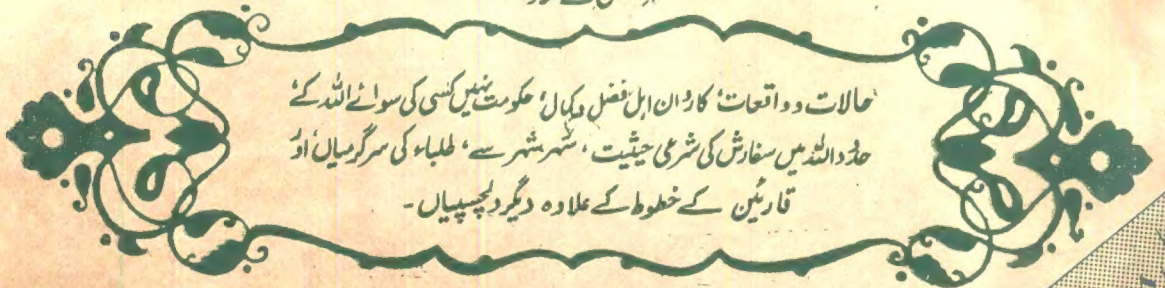 حالات و واقعات، کاروان اہل فضل و کمال، حکومت نہیں کسی کی سوائے اللہ کے
حدود اللہ میں سفارش کی شرعی حیثیت، شہر شہر سے، طلباء کی سرگرمیاں اور
قارئین کے خطوط کے علاوہ دیگر دلچسپیاں۔